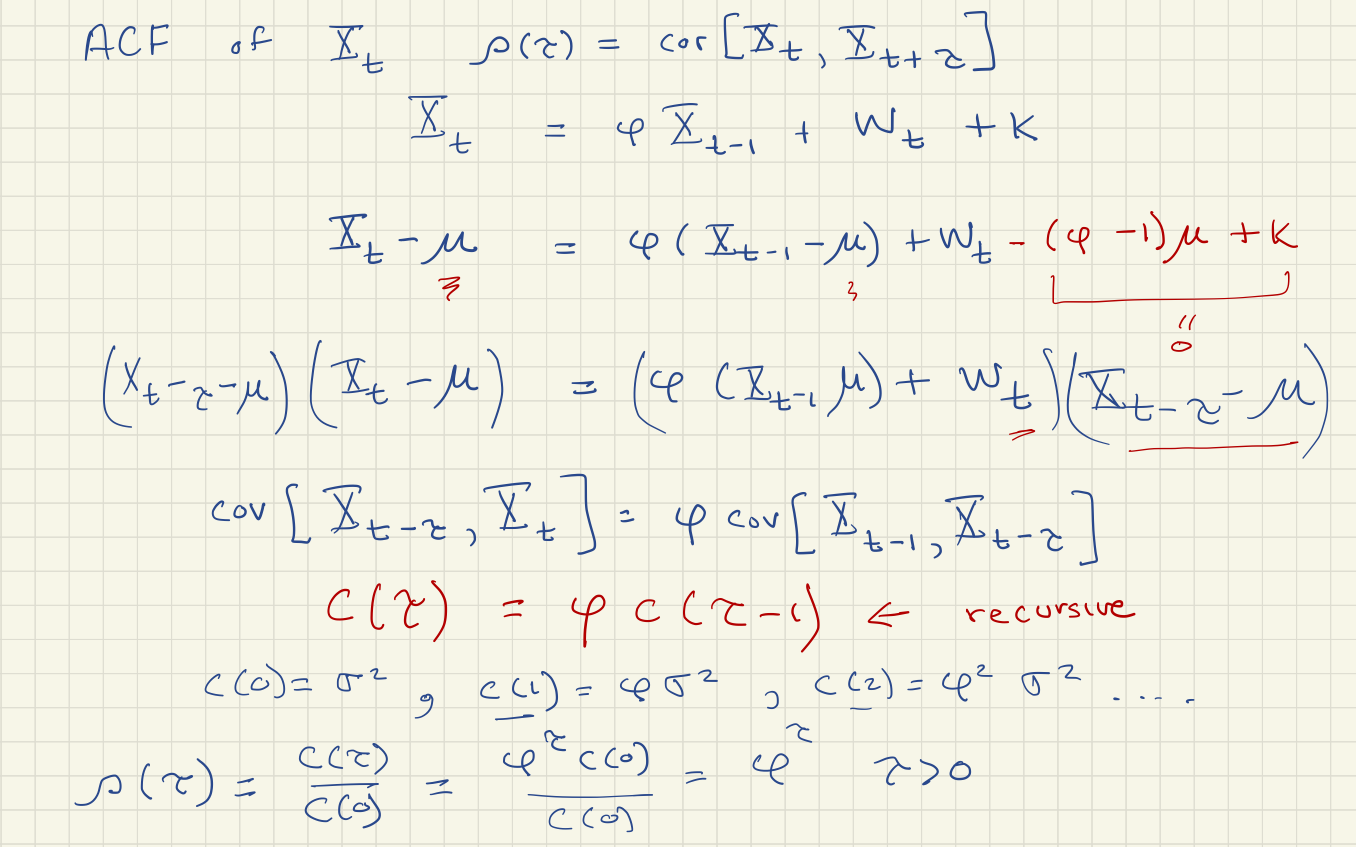 ACF of X_t ρ(τ) = cor[X_t, X_{t+τ}]
X_t = φ X_{t-1} + W_t + K
X_t - μ = φ(X_{t-1} - μ) + W_t - (φ - 1)μ + K
"
0
(X_{t-τ} - μ)(X_t - μ) = (φ (X_{t-1} μ) + W_t)(X_{t-τ} - μ)
cov[X_{t-τ}, X_t] = φ cov[X_{t-1}, X_{t-τ}]
C(τ) = φ C(τ-1) ← recursive
C(0) = σ², C(1) = φσ², C(2) = φ² σ² ....
ρ(τ) = C(τ)/C(0) = φ^τ C(0)/C(0) = φ^τ τ>0